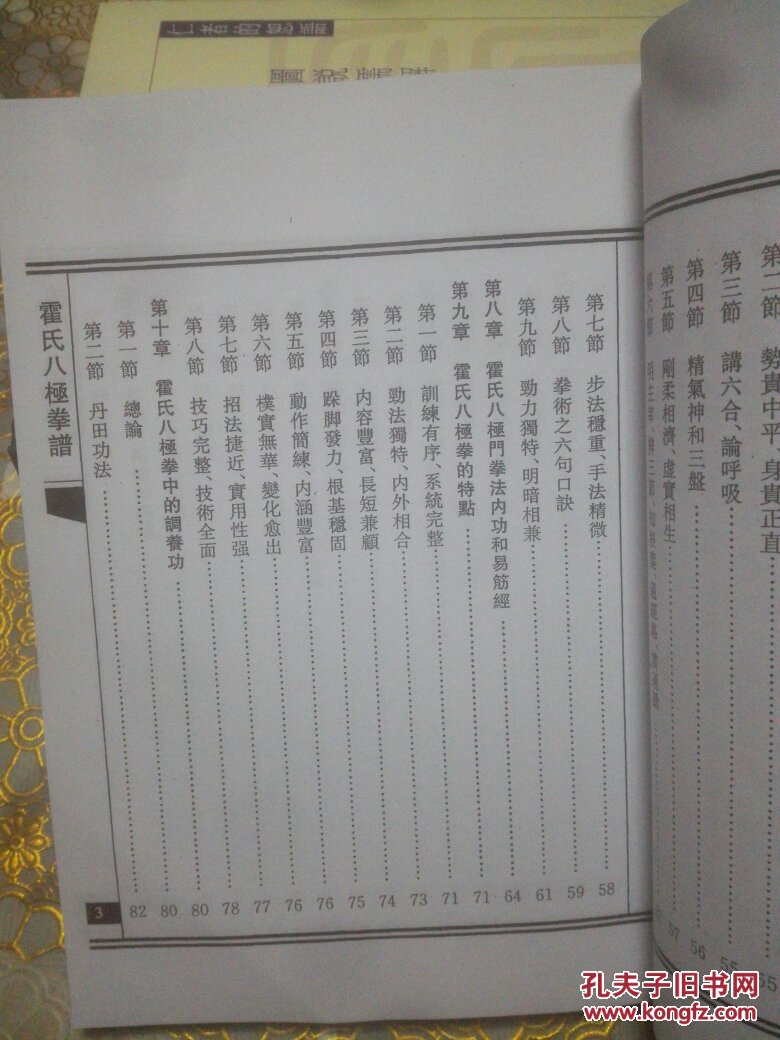 第二節 勢貴中平、身貴正直 55
第三節 講六合、論呼吸 55
第四節 精氣神和三盤 56
第五節 剛柔相濟、虛實相生 57
第六節
第七節 步法穩重、手法精微 58
第八節 拳術之六句口訣 59
第九節 勁力獨特、明暗相兼 61
第八章 霍氏八極門拳法内功和易筋經 64
第九章 霍氏八極拳的特點 71
第一節 訓練有序、系統完整 71
第二節 勁法獨特、内外相合 73
第三節 内容豐富、長短兼顧 74
第四節 跺脚發力、根基穩固 75
第五節 動作簡練、内涵豐富 76
第六節 樸實無華、變化愈出 76
第七節 招法捷近、實用性强 77
第八節 技巧完整、技術全面 78
第十章 霍氏八極拳中的調養功 80
第一節 總論 80
第二節 丹田功法 82
霍氏八極拳譜
3
孔夫子旧书网
www.kongfz.com